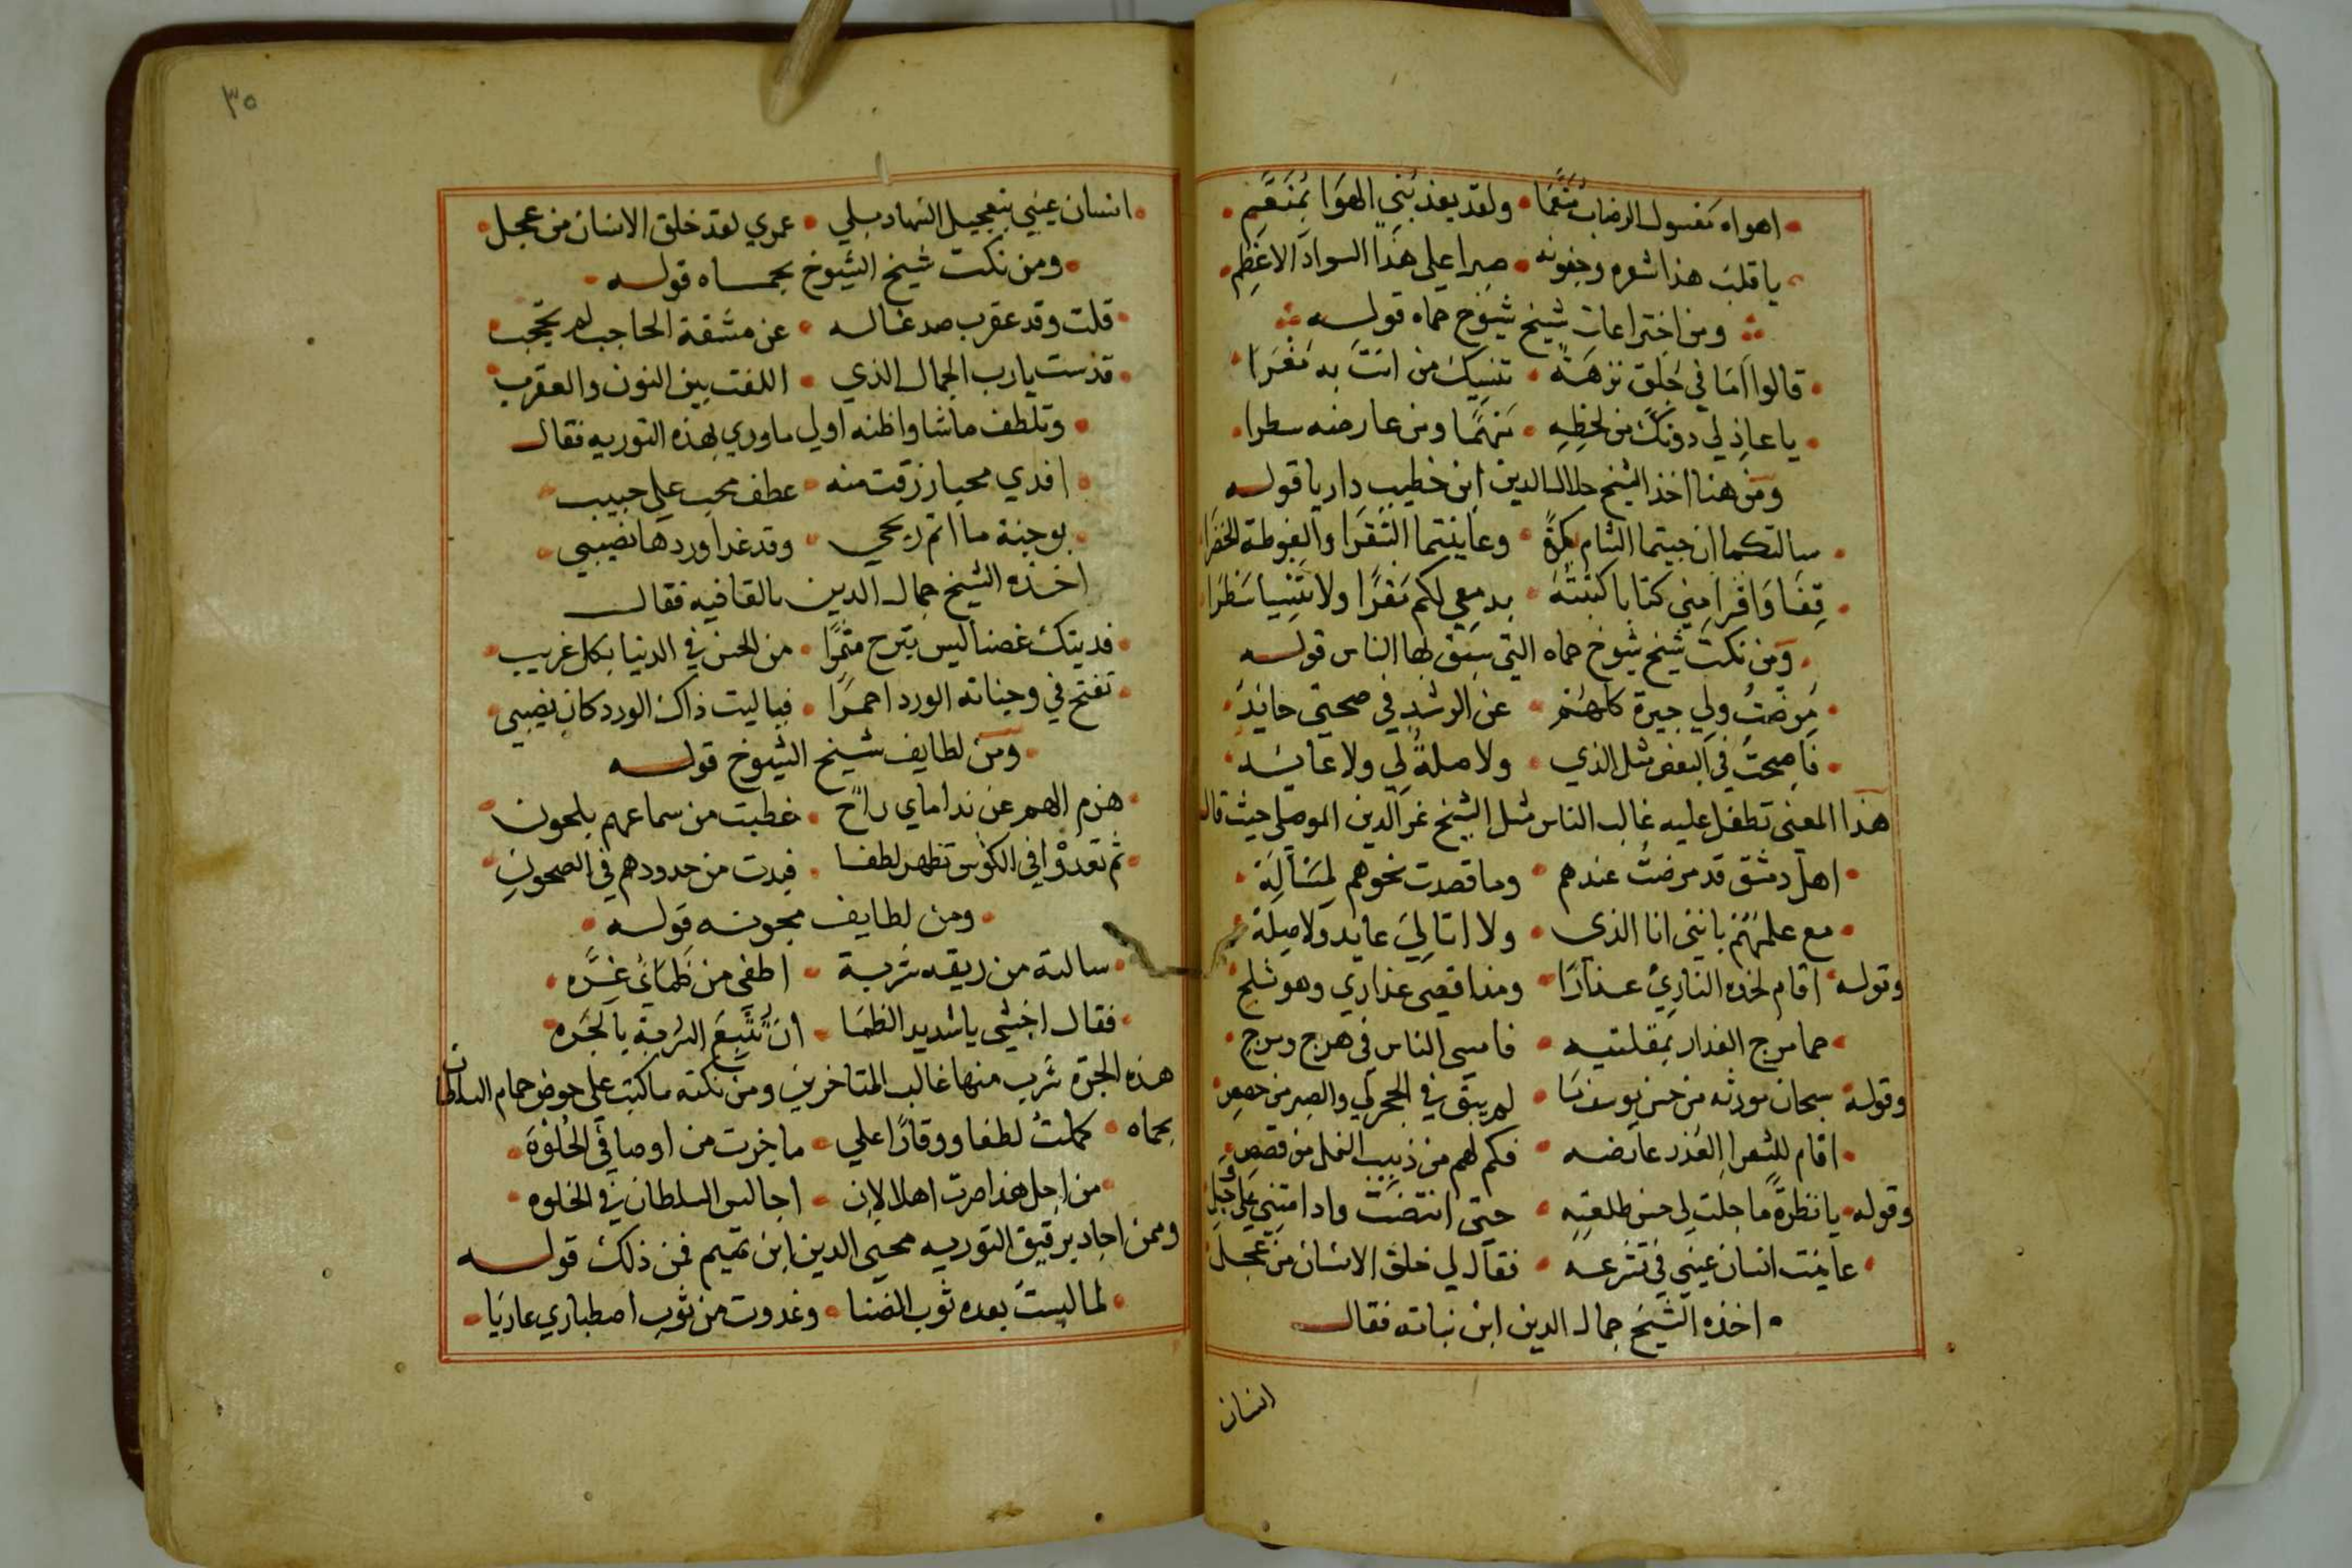 اهواه معسول الرضاب منعما ولقد يعذبني الهوا بمنعم
يا قلب هذا شعره وجفونه صبرا على هذا السواد الاعظم
ومن اختراعات شيخ شيوخ حماه قوله
قالوا اما في جلق نزهة تنسيك من انت به مغرا
يا عاذلي دونك من لحظه سهما ومن عارضه سطرا
ومن هنا اخذ الشيخ جلال الدين ابن خطيب داريا قوله
سالتكما ان جيتما الشام بكرة وعاينتما الشقرا والغوطة الخضرا
قفا واقرا مني كتابا كتبته بدمعي لكم مقرا ولا تنسيا سطرا
ومن نكت شيخ شيوخ حماه التي سبق لها الناس قوله
مرضت ولي جيرة كلهم عن الرشد في صحبتي حايد
فاصبحت في البعض مثل الذي ولا صلة لي ولا عايد
هذا المعنى تطفل عليه غالب الناس مثل الشيخ عز الدين الموصلي حيث قال
اهل دمشق قد مرضت عندهم وما قصدت نحوهم لمسألة
مع علمهم بانني انا الذي ولا اتا لي عايد ولا صلة
وقوله اقام لخده الناري عذارا ومذ اقصى عذاري وهو ثلج
حما مرج العذار بمقلتيه فامسى الناس في هرج ومرج
وقوله سبحان مورثه من حسن يوسف ما لم يبق في الحجر لي والصبر من حصص
اقام للشعرا العذر عارضه فكم لهم من ذبيب النمل من قصص
وقوله يا نظرة ما جلت لي حسن طلعته حتى انقضت وادامتني على وجل
عاينت انسان عيني في تشرعه فقال لي خلق الانسان من عجل
اخذه الشيخ جمال الدين ابن نباته فقال
انسان
٣٥
انسان عيني بتعجيل السهاد بلي عمري لقد خلق الانسان من عجل
ومن نكت شيخ الشيوخ بحماه قوله
قلت وقد عقرب صدغا له عن مشقة الحاجب لم يحجب
قدست يا رب الجمال الذي اللفت بين النون والعقرب
وتلطف ماشا واظنه اولى ما وري بهذه التوريه فقال
افدي محيا رزقت منه عطف محب على حبيب
بوجنة ما اتم ريحي وقد غدا وردها نصيبي
اخذه الشيخ جمال الدين بالقافيه فقال
فديتك غصنا ليس يبرح مثمرا من الحسن في الدنيا بكل غريب
تفتح في وجناته الورد احمرا فيا ليت ذاك الورد كان نصيبي
ومن لطايف شيخ الشيوخ قوله
هزم الهم عن نداماي راح خطبت من سماعهم بلحون
ثم تعدوا في الكؤس تظهر لطفا فبدت من خدودهم في الصحون
ومن لطايف مجونه قوله
سالته من ريقه شربة اطفي من ظمائي غره
فقال اخشى يا شديد الظما ان تتبع الشربة بالجره
هذه الجره شرب منها غالب المتاخرين ومن نكته ما كتب على حوض حمام السلطان
بحماه كملت لطفا ووقارا علي ما خرت من اوصافي الحلوة
من اجل هذا صرت اهلا لان اجالس السلطان في الخلوه
وممن اجاد برقيق التوريه محيي الدين ابن تميم فمن ذلك قوله
لما لبست بعده ثوب الضنا وغدوت من ثوب اصطباري عاريا